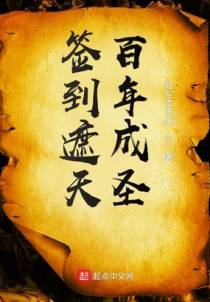 百年成圣
签到遮天
起点中文网